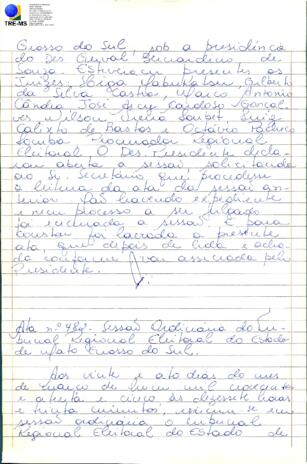 TRE-MS
Grosso do Sul, sob a presidência
do Des Gerval Bernardino de
Souza. Estiveram presentes os
Juízes: Higa Nabukatsu, Gilberto
da Silva Castro, Marco Antonio
Cândia, José Cardoso Gonçal-
ves, Wilson, Luiz
Calixto de Bastos e Octávio Pacheco
Lomba Procurador Regional
Eleitoral. O Des. Presidente decla-
rou aberta a sessão solicitando
ao Sr. Secretário que procedesse
a leitura da ata da sessão an-
terior. Não havendo expediente
e nem processo a ser julgado
foi encerrada a sessão. E para
constar foi lavrada a presente
ata, que depois de lida e acha-
da conforme vai assinada pelo
Presidente.
Ata nº 484ª Sessão Ordinária do Tri-
bunal Regional Eleitoral do Estado
de Mato Grosso do Sul.
Aos vinte e oito dias do mes
de março de hum mil novecentos
e oitenta e cinco, às dezessete horas
e trinta minutos, reuniu-se em
sessão ordinária o Tribunal
Regional Eleitoral do Estado de